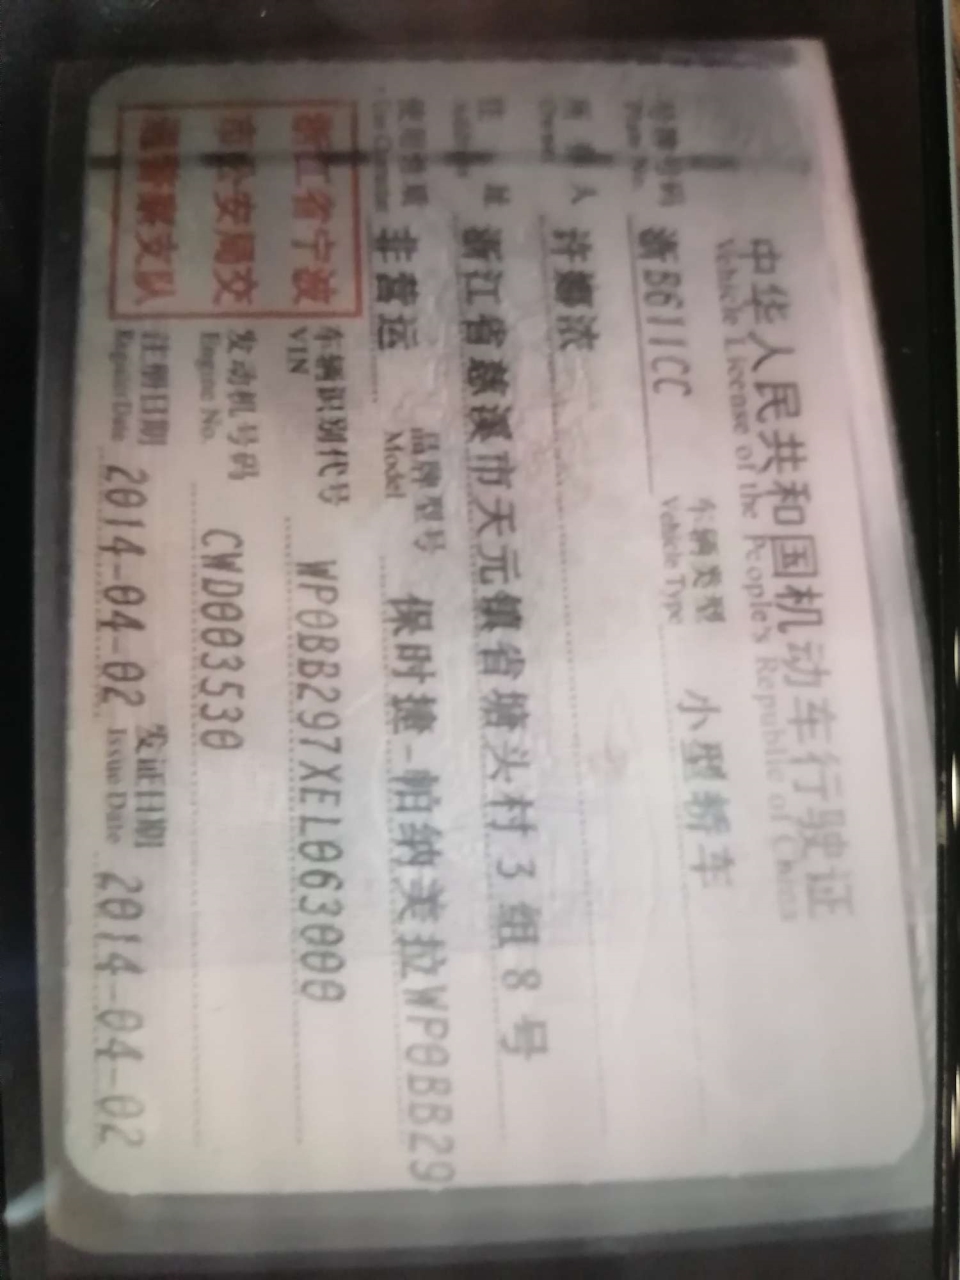 中华人民共和国机动车行驶证
Vehicle License of the People's Republic of China
号牌号码 浙B611CC 车辆类型 小型轿车
Plate No. Vehicle Type
所有人 许娜浓
Owner
住址 浙江省慈溪市天元镇省塘头村3组8号
Address
使用性质 非营运 品牌型号 保时捷-帕纳美拉WP0BB29
Use Character Model
浙江省宁波
市公安局交
通警察支队
车辆识别代号 WP0BB297XEL063000
VIN
发动机号码 CWD003530
Engine No.
注册日期 2014-04-02 发证日期 2014-04-02
Register Date Issue Date